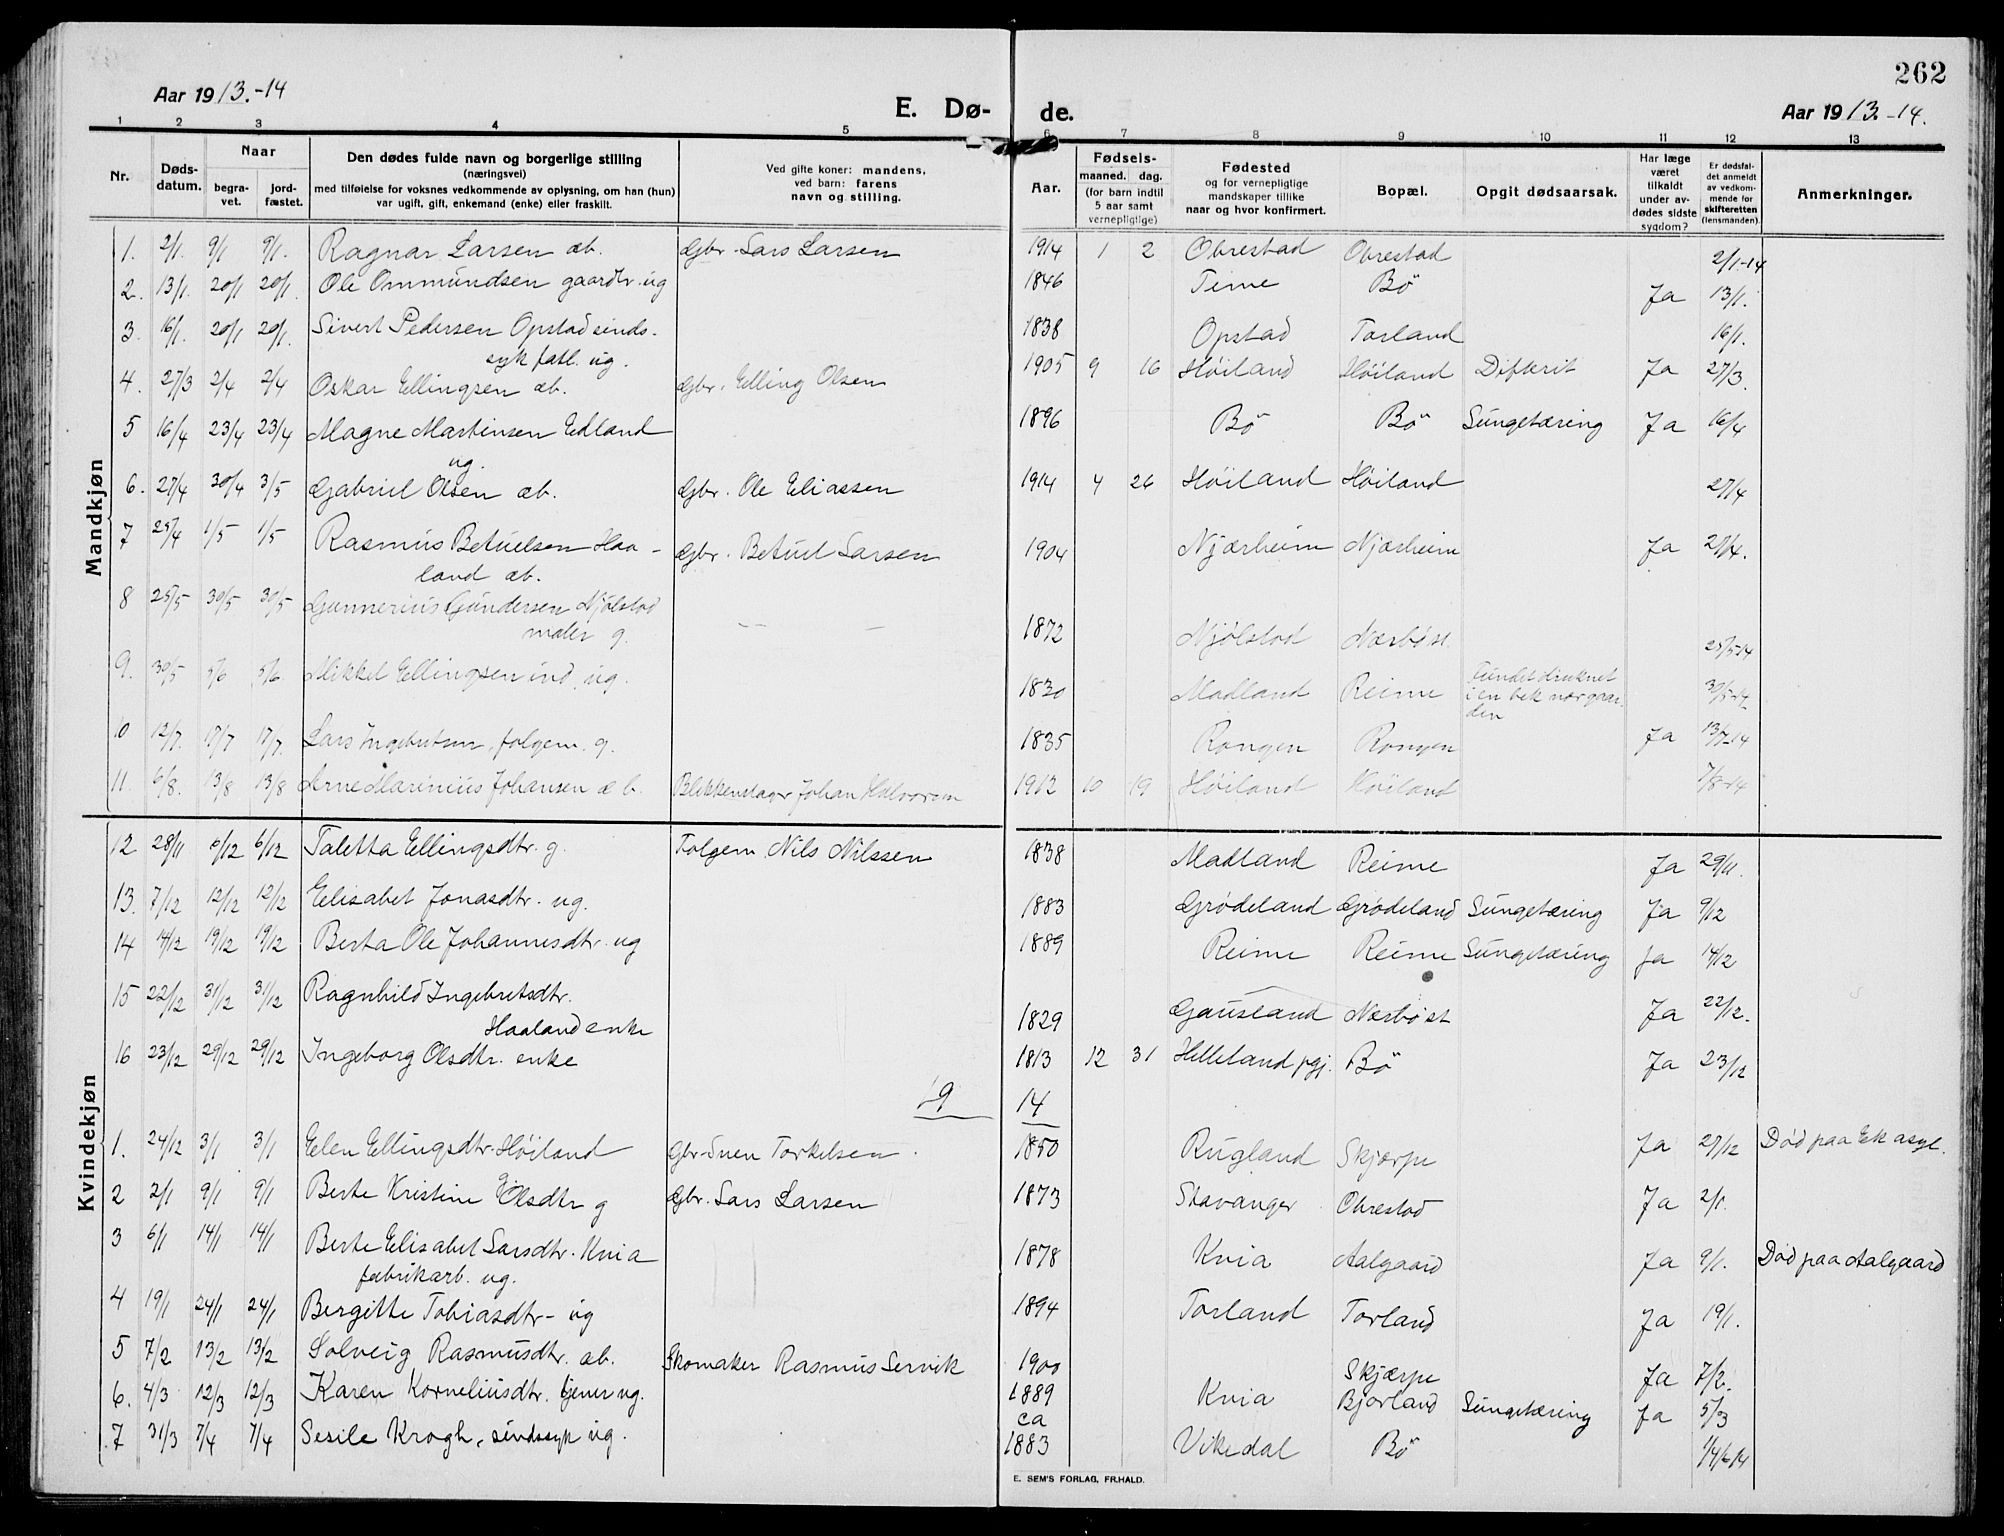 262
Aar 1913.-14
E. Dø-
de.
Aar 1913.-14.
1 2 3 4 5 6 7 8 9 10 11 12 13
Nr.
Døds-
datum.
Naar
begra-
vet.
jord-
fæstet.
Den dødes fulde navn og borgerlige stilling
(næringsvei)
med tilføielse for voksnes vedkommende av oplysning, om han (hun)
var ugift, gift, enkemand (enke) eller fraskilt.
Ved gifte koner: mandens,
ved barn: farens
navn og stilling.
Aar.
Fødsels-
maaned. dag.
(for barn indtil
5 aar samt
vernepligtige)
Fødested
og for vernepligtige
mandskaper tillike
naar og hvor konfirmert.
Bopæl.
Opgit dødsaarsak.
Har læge
været
tilkaldt
under av-
dødes sidste
sygdom?
Er dødsfal-
det anmeldt
av vedkom-
mende for
skifteretten
(lensmanden).
Anmerkninger.
Mandkjøn
1. 2/1. 9/1 9/1. Ragnar Larsen æb. Gbr. Lars Larsen 1914 1 2 Obrestad Obrestad 2/1-14
2. 13/1. 20/1 20/1. Ole Ommundsen gaardbr. ug 1846 Time Bö Ja 13/1.
3 16/1. 20/1 20/1. Sivert Pedersen Opstad sinds-
syk fatl. ug. 1838 Opstad Torland 16/1.
4. 27/3 2/4 2/4 Oskar Ellingsen æb. Gbr. Elling Olsen 1905 9 16 Höiland Höiland Difterit Ja 27/3.
5 16/4 23/4 23/4 Magne Martinsen Edland
ug. 1896 Bö Bö Lungetæring Ja 16/4
6. 27/4 30/4 3/5 Gabriel Olsen æb. Gbr. Ole Eliassen 1914 4 26 Höiland Höiland 27/4
7 25/4 1/5 1/5 Rasmus Betuelsen Haa-
land æb. Gbr. Betuel Larsen 1904 Njærheim Njærheim Ja 27/4.
8 25/5 30/5 30/5 Gunnerius Gundersen Njölstad
maler g. — — 1872 Njölstad Nærböst. 25/5-14
9. 30/5 5/6 5/6. Mikkel Ellingsen ind. ug. 1830 Madland Reime Fundet druknet
i en bek nær gaar-
den 30/5-14
10 12/7. 17/7 17/7. Lars Ingebretsen, folgem. g. 1835 Rongen Rongen Ja 13/7-14
11. 6/8. 13/8 13/8 Arne Marinius Johansen æb. Blikkenslager Johan Halvorsen 1912 10 19 Höiland Höiland 7/8-14
Kvindekjøn
12 28/11 6/12 6/12 Taletta Ellingsdtr. g. Folgem. Nils Nilssen 1838 Madland Reime Ja 29/11.
13. 7/12 12/12 12/12 Elisabet Jonasdtr. ug. 1883 Grödeland Grödeland Lungetæring Ja 9/12
14 14/12 19/12 19/12 Berta Ole Johannesdtr. ug 1889 Reime Reime Lungetæring Ja 14/12
15 22/12 31/12 31/12 Ragnhild Ingebretsdtr.
Haaland enke 1829 Gausland Nærböst Ja 22/12.
16 23/12 29/12 29/12 Ingeborg Olsdtr. enke 1813 12 31 Helleland pgj. Bö Ja 23/12
19 14
1. 24/12 3/1 3/1 Elen Ellingsdtr. Höiland Gbr. Sven Torkelsen. 1850 Rugland Skjærpe Ja 27/12 Död paa Ek asyl.
2 2/1 9/1 9/1 Berte Kristine Olsdtr g Gbr. Lars Larsen 1873 Stavanger Obrestad Ja 2/1.
3 6/1 14/1 14/1 Berte Elisabet Larsdtr. Kvia
fabrikarb. ug. 1878 Kvia Aalgaard Ja 9/1. Död paa Aalgaard
4 19/1 24/1 24/1 Bergitte Tobiasdtr- ug 1894 Torland Torland Ja 19/1.
5 7/2 13/2 13/2 Solveig Rasmusdtr. æb. Skomaker Rasmus Servik 1900 Skjærpe Ja 7/2.
6. 4/3 12/3 12/3 Karen Korneliusdtr. tjener ug. 1889 Kvia Bjorland Lungetæring Ja 5/3
7 31/3 7/4 7/4 Sesile Krogh, sindssyk ug. ca
1883 Vikedal Bö
E. SEM'S FORLAG, FR.HALD.